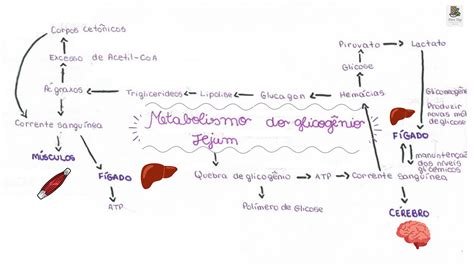 Corpos Cetônicos
Excesso de Acetil-CoA
Ác graxos
Triglicerídeos
Lipólise
Glucagon
Hemácias
Glicose
Piruvato
Lactato
Corrente sanguínea
MÚSCULOS
FÍGADO
ATP
Metabolismo do glicogênio
Jejum
Quebra de glicogênio
ATP
Corrente Sanguínea
Polímero de Glicose
Produzir
novas
de glicose
FÍGADO
manuntenção
dos níveis
glicêmicos
CÉREBRO